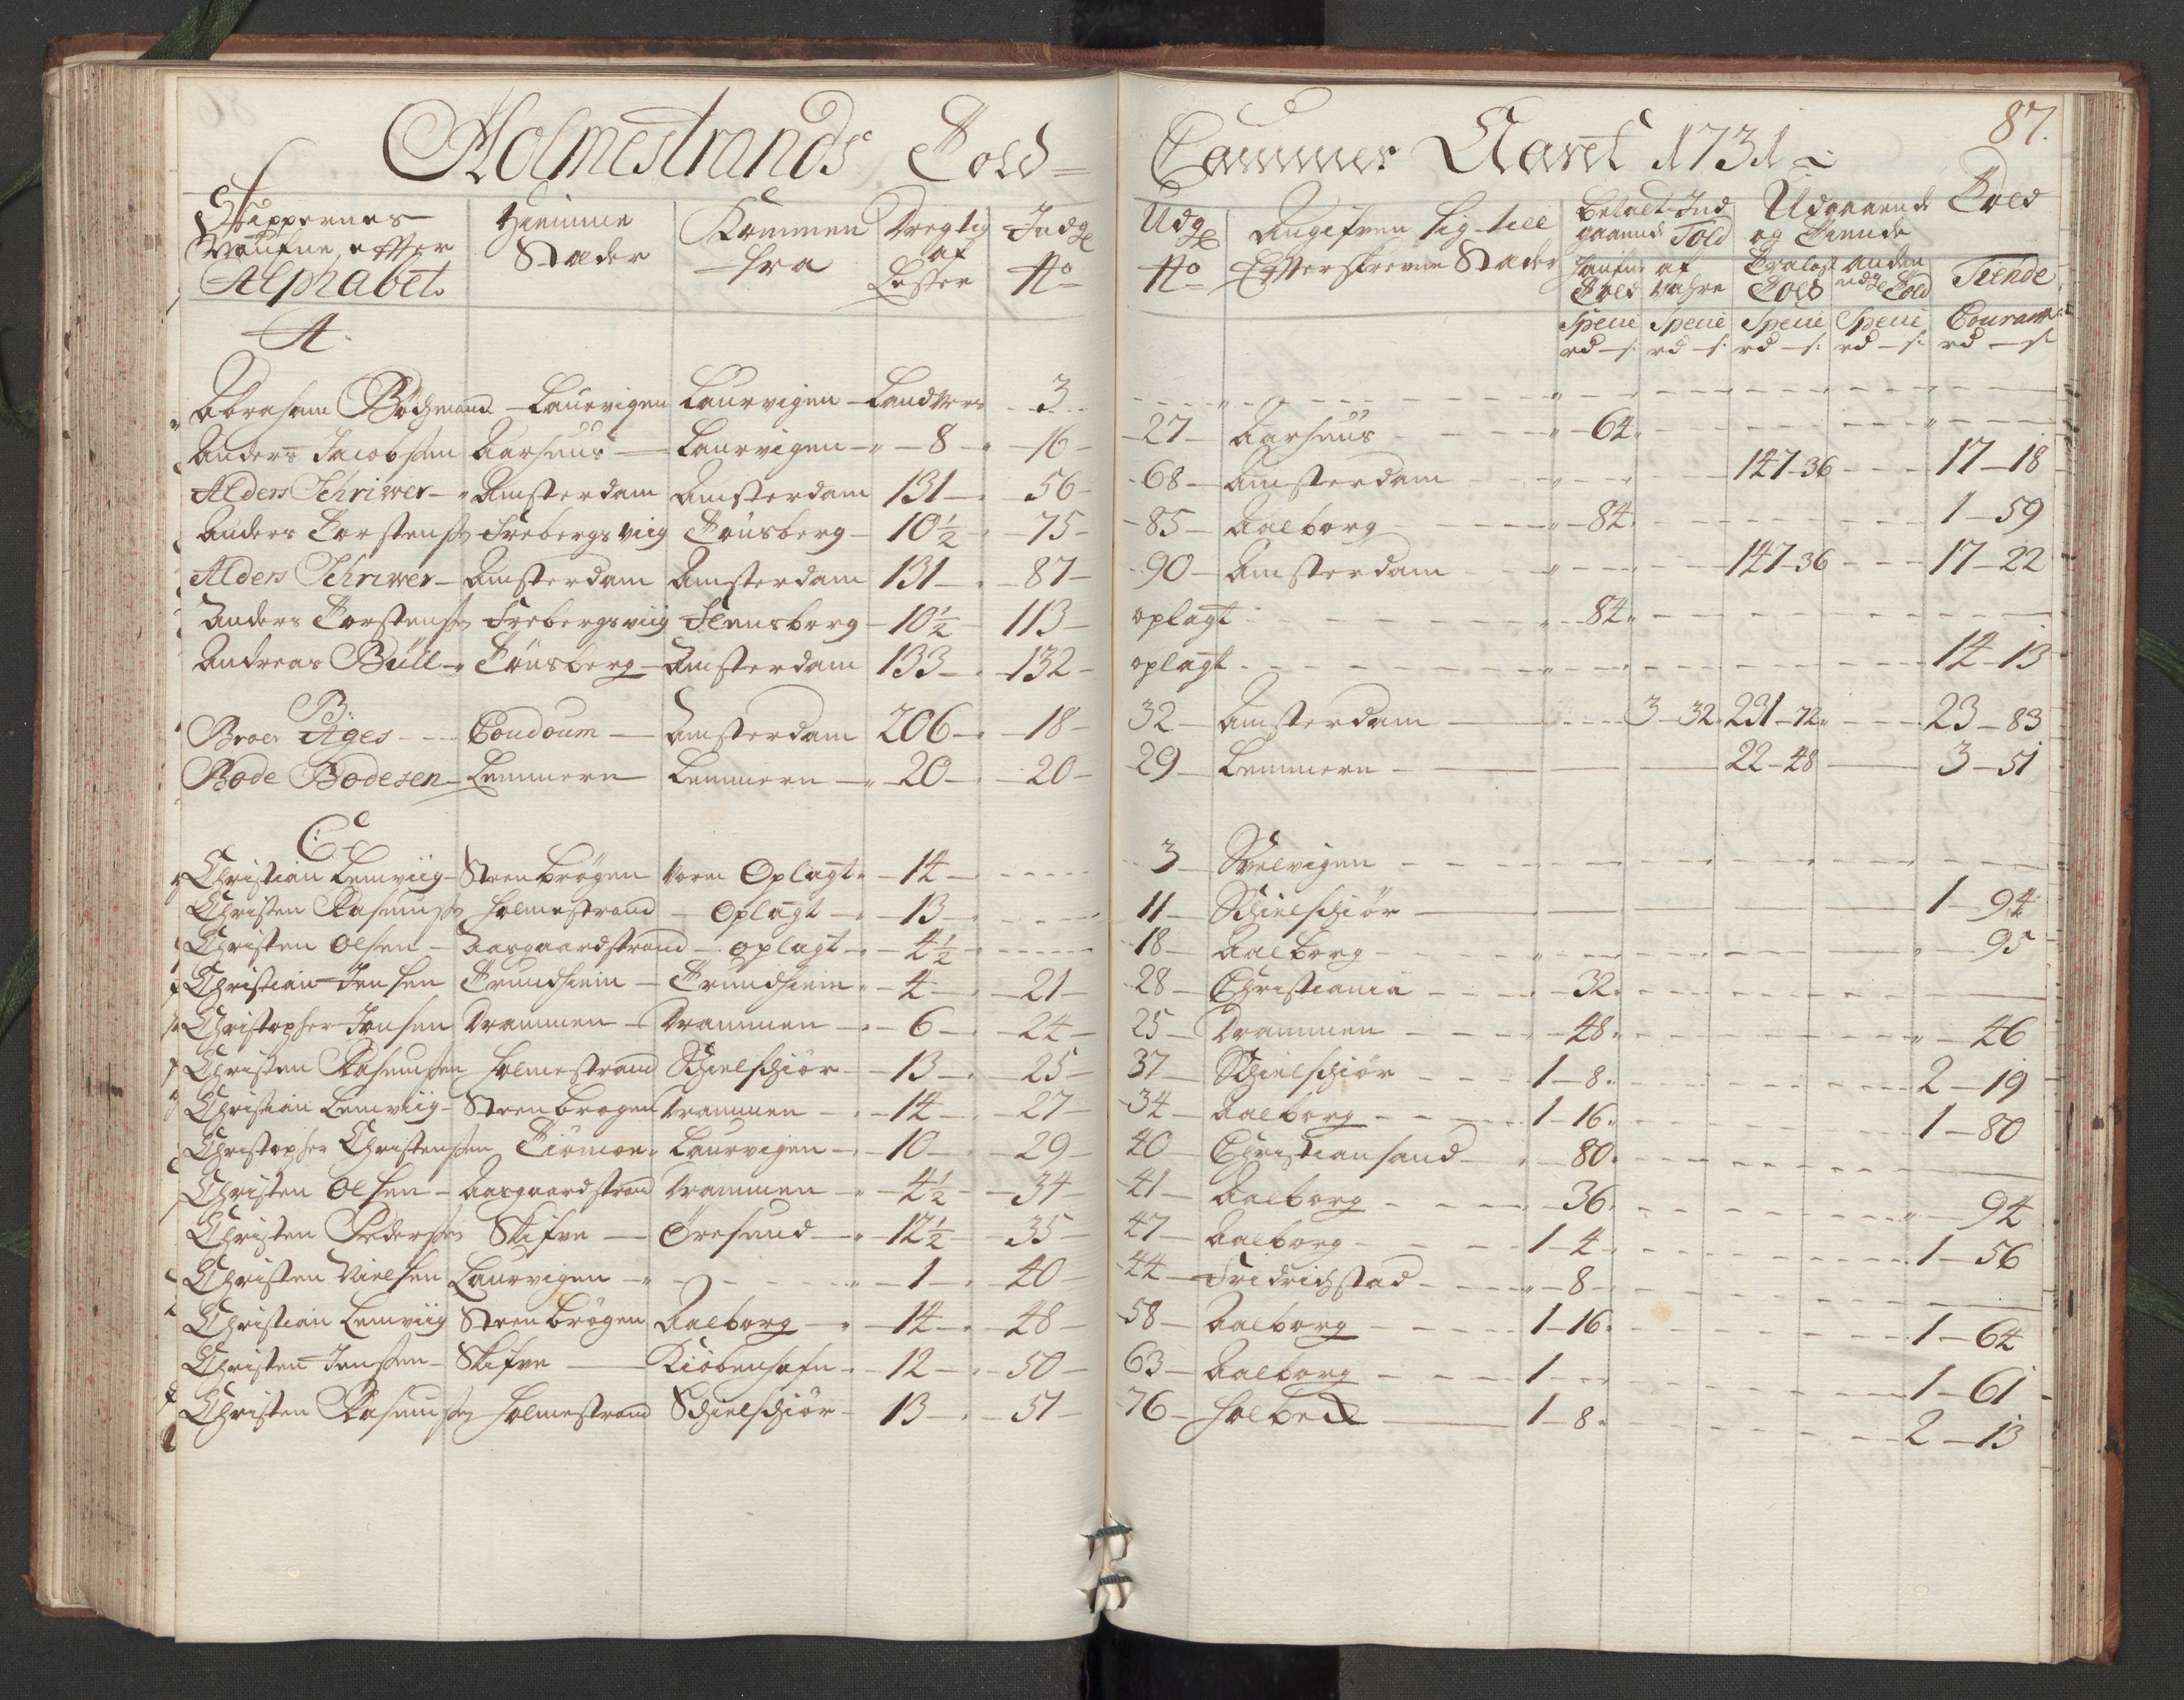 Holmestrands Told= Cammer Aaret 1731
87.
Skippernes Naufne efter Alphabet. | Hiemme Stæder | Kommen fra | Dregtig af Lester | Indg No | Udg No | Angifven sig till Efterskrevne Stæder | betalt Indgaaende Told | Udgaaende Told og Tiende
Haufne Told | af Vahre | Tralast Told | anden udg Told | Teende
Specie | Specie | Specie | Specie | Courant
rd - s: | rd - s: | rd - s: | rd - s: | rd - s
A.
Abraham Böchmand - Laurvigen Laurvigen - Landvers 3
Anders Jacobsen Aarhuus - Laurvigen - 8 - 16 - 27 - Aarhuus - 64
Alders Schriwer - Amsterdam Amsterdam 131 - 56 - 68 - Amsterdam - 147-36 - 17-18
Anders Torstens Frebergsviig Tönsberg - 10½ - 75 - 85 - Aalborg - 84 - 1-59
Alders Schriwer - Amsterdam Amsterdam 131 - 87 - 90 - Amsterdam - 147-36 - 17-22
Anders Torstens Frebergsviig Flensborg - 10½ - 113 - oplagt - 84
Andreas Bull - Tönsberg - Amsterdam 133 - 132 - oplagt - 14-13
B:
Broer Ages - Coudoum - Amsterdam 206 - 18 - 32 - Amsterdam - 3-32 231-72 - 23-83
Bode Bodesen - Lemmern - Lemmern - 20 - 20 - 29 - Lemmern - 22-48 - 3-51
C:
Christian Lemviig - Steenbrögen Oplagt - 14 - 3 - Svelvigen
Christen Rasmus Holmestrand - Oplagt - 13 - 11 - Schielschiör - 1-94
Christen Olsen - Aasgaardstrand - oplagt - 4½ - 18 - Aalborg - 95
Christian Jensen Trundhiem - Trundhiem - 4 - 21 - 28 - Christiania - 32
Christopher Jansen Drammen - Drammen - 6 - 24 - 25 - Drammen - 48 - 46
Christen Rasmusen Holmestrand Schielschiör - 13 - 25 - 37 - Schielschiör - 1-8 - 2-19
Christian Lemviig - Steenbrögen Drammen - 14 - 27 - 34 - Aalborg - 1-16 - 1-80
Christopher Christensen Tiömöe - Laurvigen - 10 - 29 - 40 - Christiansand - 80
Christen Olsen - Aasgaardstrand Drammen - 4½ - 34 - 41 - Aalborg - 36 - 94
Christen Peders Skifve - Öresund - 12½ - 35 - 47 - Aalborg - 1-4 - 1-56
Christen Nielsen Laurvigen - 1 - 40 - 44 - Fridrichstad - 8
Christian Lemviig Steenbrögen Aalborg - 14 - 48 - 58 - Aalborg - 1-16 - 1-64
Christen Jensen - Skifve - Kiöbenhafn - 12 - 50 - 63 - Aalborg - 1 - 1-61
Christen Rasmus Holmestrand Schielschiör - 13 - 51 - 76 - Holbeck - 1-8 - 2-13